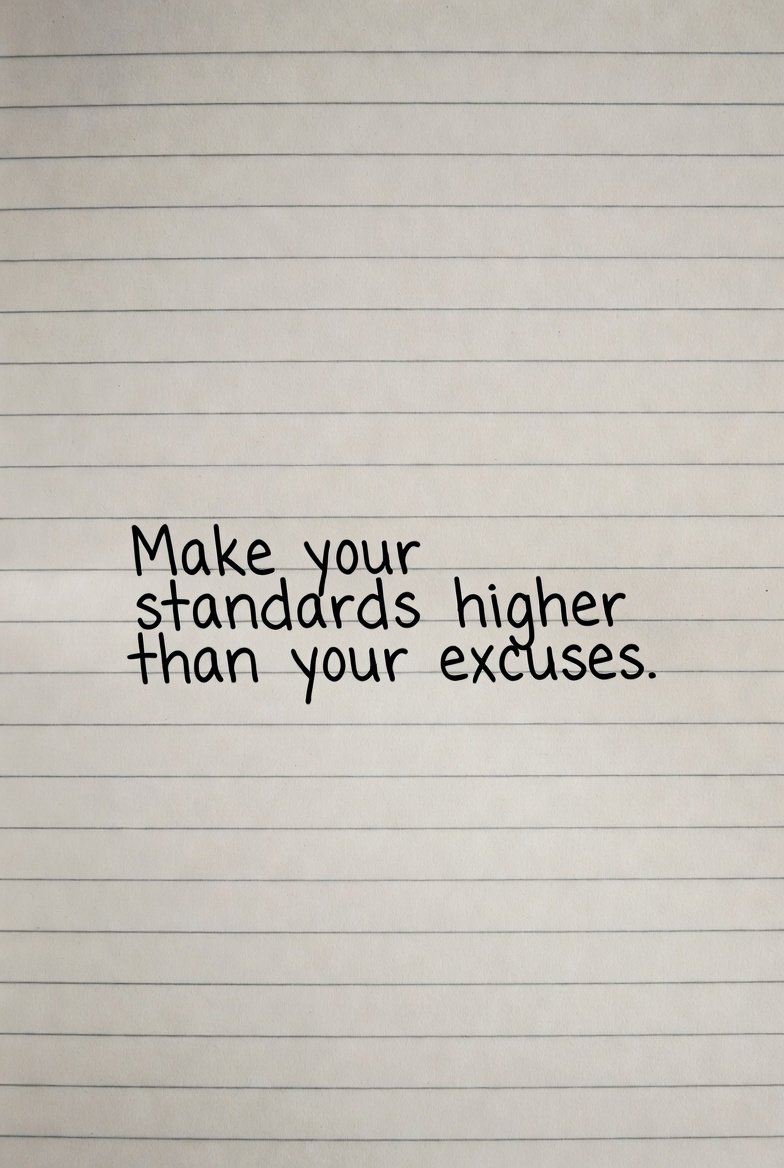 Make your
standards higher
than your excuses.